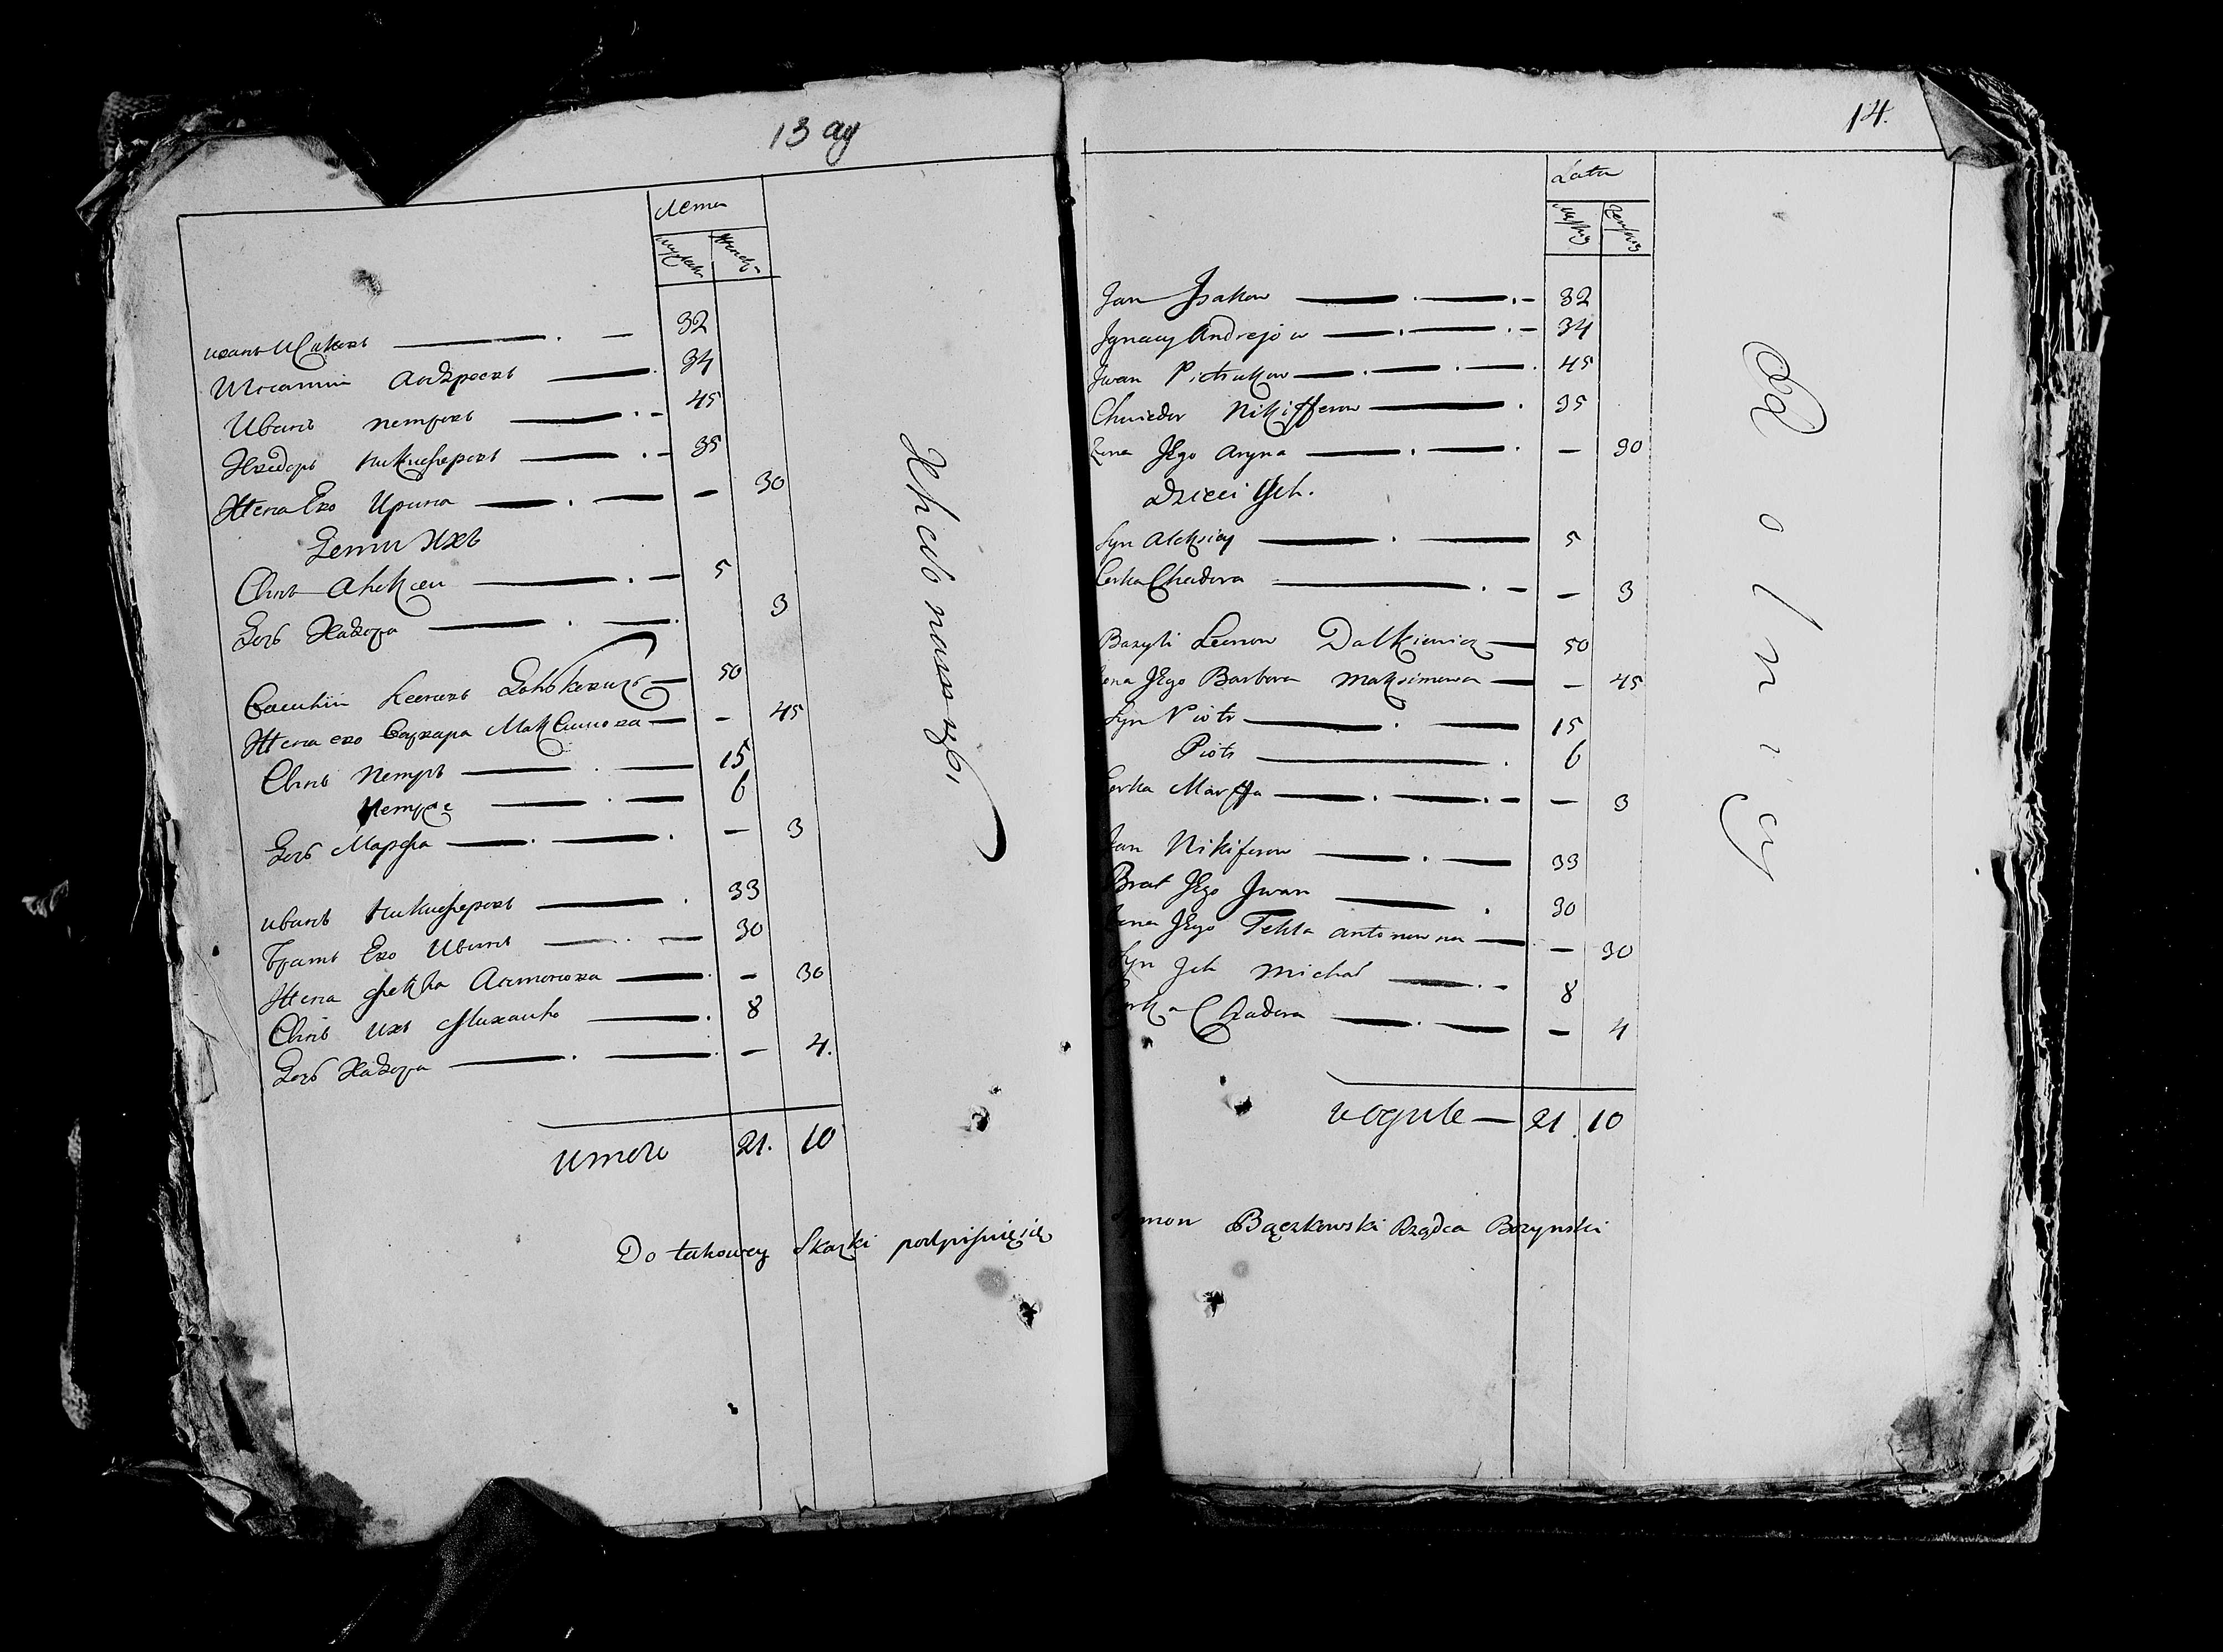 13 ау
Лета
мужеск женск
иванъ Исаковъ — 32
Игнатий Андреевъ — 34
Иванъ петровъ — 45
Хведоръ никифоровъ — 35
Жена Его Ирина — 30
Дети Ихъ
Сынъ Алексеи — 5
Дочь Хадора — 3
Василий Леоновъ Далькевичъ — 50
Жена его Варвара Максимова — 45
Сынъ петръ — 15
петръ — 6
Дочь Марфа — 3
иванъ Никифоровъ — 33
братъ Его Иванъ — 30
Жена фекла Антонова — 30
Сынъ ихъ Михаило — 8
Дочь Хадора — 4.
итого 21. 10
Хлебопашцы
Do takowey Skazki podpisuię się
14.
Lata
męskiey żeńskiey
Jan Jsakow — 32
Jgnacy Andrejow — 34
Jwan Pietrukow — 45
Chwiedor Nikifferow — 35
Żona Jego Aryna — 30
Dzieci Jch.
Syn Aleksiey — 5
Corka Chadora — 3
Bazyli Leonow Dalkiewicz — 50
żona Jego Barbara Maksimowa — 45
Syn Piotr — 15
Piotr — 6
Corka Marffa — 3
Jan Nikiferow — 33
Brat Jego Jwan — 30
żona Jego Tekla antonowna — 30
Syn Jch Michał — 8
Corka Chadora — 4
w ogule — 21. 10
Rolnicy
Symon Bączkowski Rządca